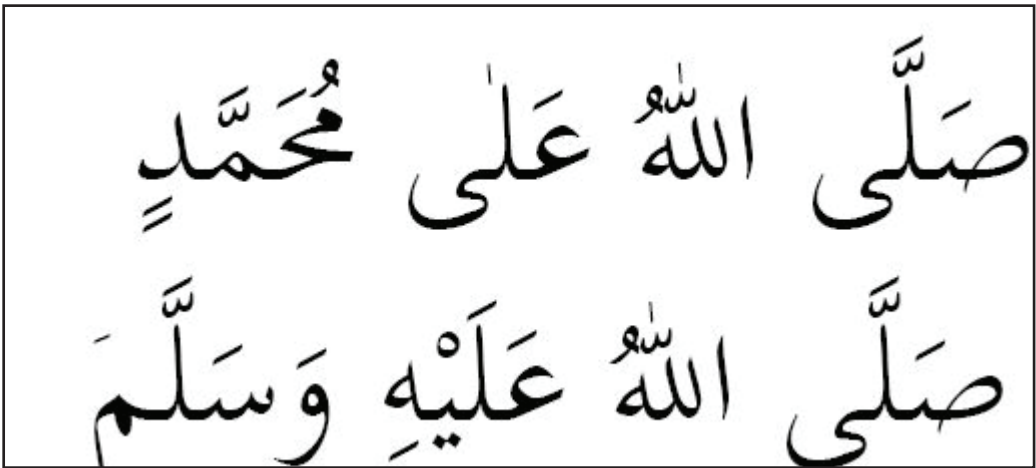 صَلَّى اللّٰهُ عَلٰى مُحَمَّدٍ
صَلَّى اللّٰهُ عَلَيْهِ وَسَلَّمَ